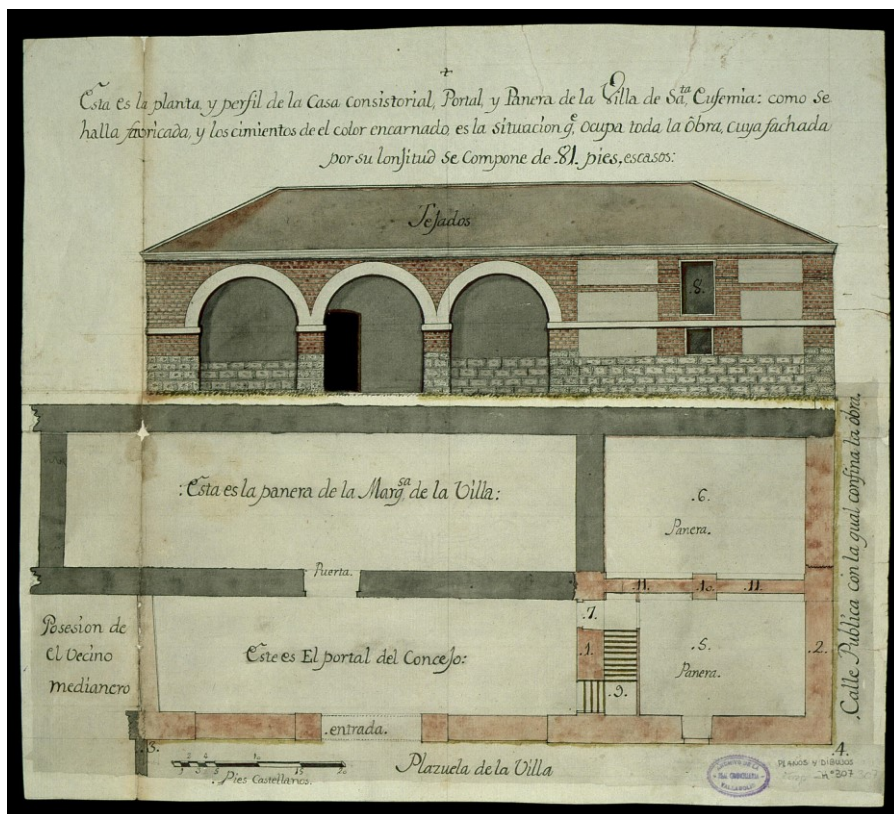 Esta es la planta, y perfil de la Casa Consistorial, Portal, y Panera de la Villa de Sta, Eufemia: como se
halla fabricada, y los cimientos de el color encarnado, es la situacion qe. ocupa toda la Obra, cuya fachada
por su lonjitud se compone de .81. pies, escasos:
Tejados
.8.
:Esta es la panera de la Margsa. de la Villa:
.6.
Panera.
Puerta.
.11. .10. .11.
.7.
Posesion de
el Vecino
medianero
Este es El portal del Concejo:
.1.
.5.
Panera.
.2.
.9.
.entrada.
.3.
.4.
Pies Castellanos.
Plazuela de la Villa
.Calle Publica con la qual confina la obra.
ARCHIVO DE LA
REAL CHANCILLERIA
VALLADOLID
PLANOS Y DIBUJOS
Nº 307